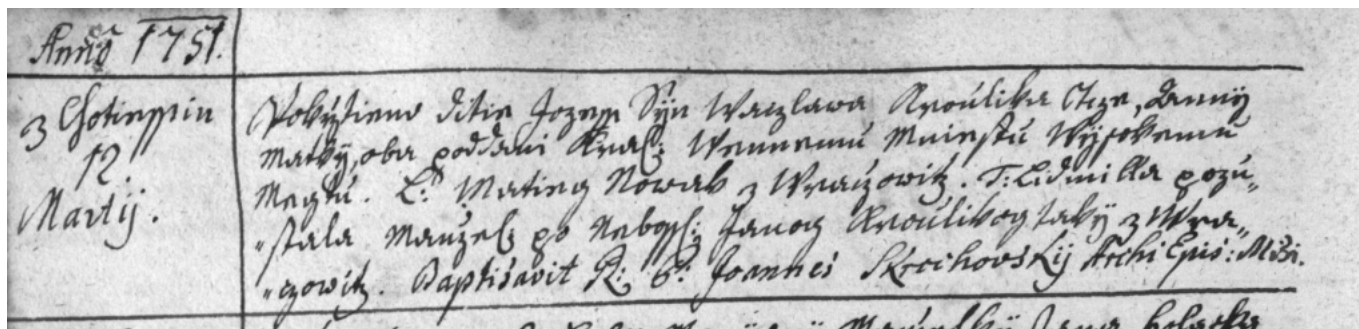 Anno 1751.
z Chotiessin
12
Martij.
Pokrztieno ditie Jozeff Syn Waczlawa Kroulika Otcze, Anny
Matky, oba poddani Kral: Wennemu Miestu Wysokemu
Meytu. L: Matieg Nowak z Wraczowitz. T: Lidmilla pozu„
„stala Manzel: po Nebosst: Janog Kroulikog taky z Wra„
„czowitz. Baptisavit R: P: Joannes Skrochovskij Archi Epis: Missi.